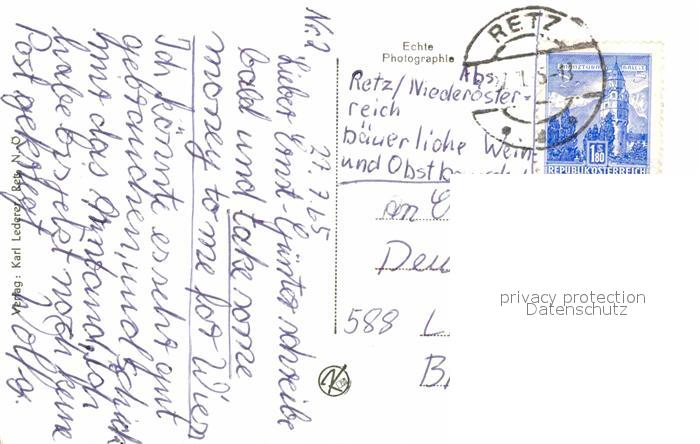 Nr. 2
27.7.65
Lieber Ernst-Günter schreibe
bald und take some
money to me for Wien
Ich könnte es recht gut
gebrauchen, und schick
ihms das Ich
habe bis jetzt noch keine
Post gekriegt
Wolfg.
Verlag: Karl Lederer, Retz N.Ö.
Echte
Photographie
RETZ
Abs.
Retz/Niederöster-
reich
bäuerliche Wein
und Obst
an
Deu
588 L
B
1.80
REPUBLIK ÖSTERREICH
K
privacy protection
Datenschutz